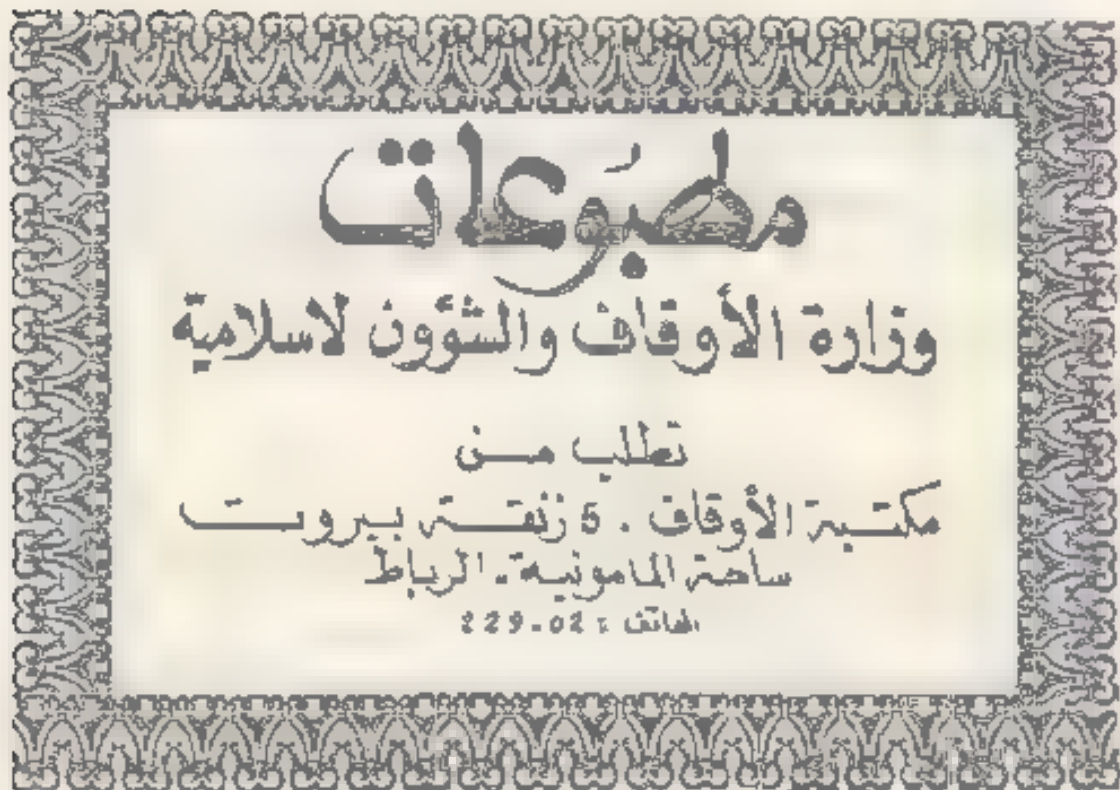 مطبوعات
وزارة الأوقاف والشؤون لاسلامية
تطلب من
مكتبة الأوقاف . 5 زنقة بيروت
ساحة المامونية . الرباط
الهاتف : 229.02